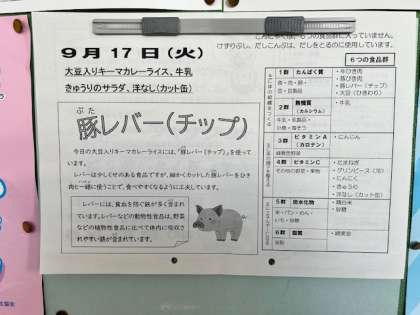 けずりぶし、だしこんぶは、だしをとるのに使用しています。
9月17日(火)
大豆入りキーマカレーライス、牛乳
きゅうりのサラダ、洋なし(カット缶)
ぶた
豚レバー(チップ)
今日の大豆入りキーマカレーライスには、「豚レバー(チップ)」を使って
います。
レバーは少しくせのある食品ですが、細かくカットした豚レバーをひき
肉と一緒に使うことで、食べやすくなるように工夫しています。
レバーには、貧血を防ぐ鉄が多く含まれ
ています。レバーなどの動物性食品は、野菜
などの植物性食品に比べて体内に吸収さ
れやすい鉄が含まれています。
6つの食品群
1群 たんぱく質
・豚ひき肉
・豚レバー(チップ)
・大豆(ひきわり)
2群 無機質
(カルシウム)
・牛乳
3群 ビタミンA
(カロテン)
・にんじん
緑黄色野菜
4群 ビタミンC
その他の野菜・果物
・たまねぎ
・グリンピース(冷)
・にんにく
・きゅうり
・洋なし(カット缶)
5群 炭水化物
米・パン・めん・
いも・砂糖
・精白米
・砂糖
6群 脂質
油脂